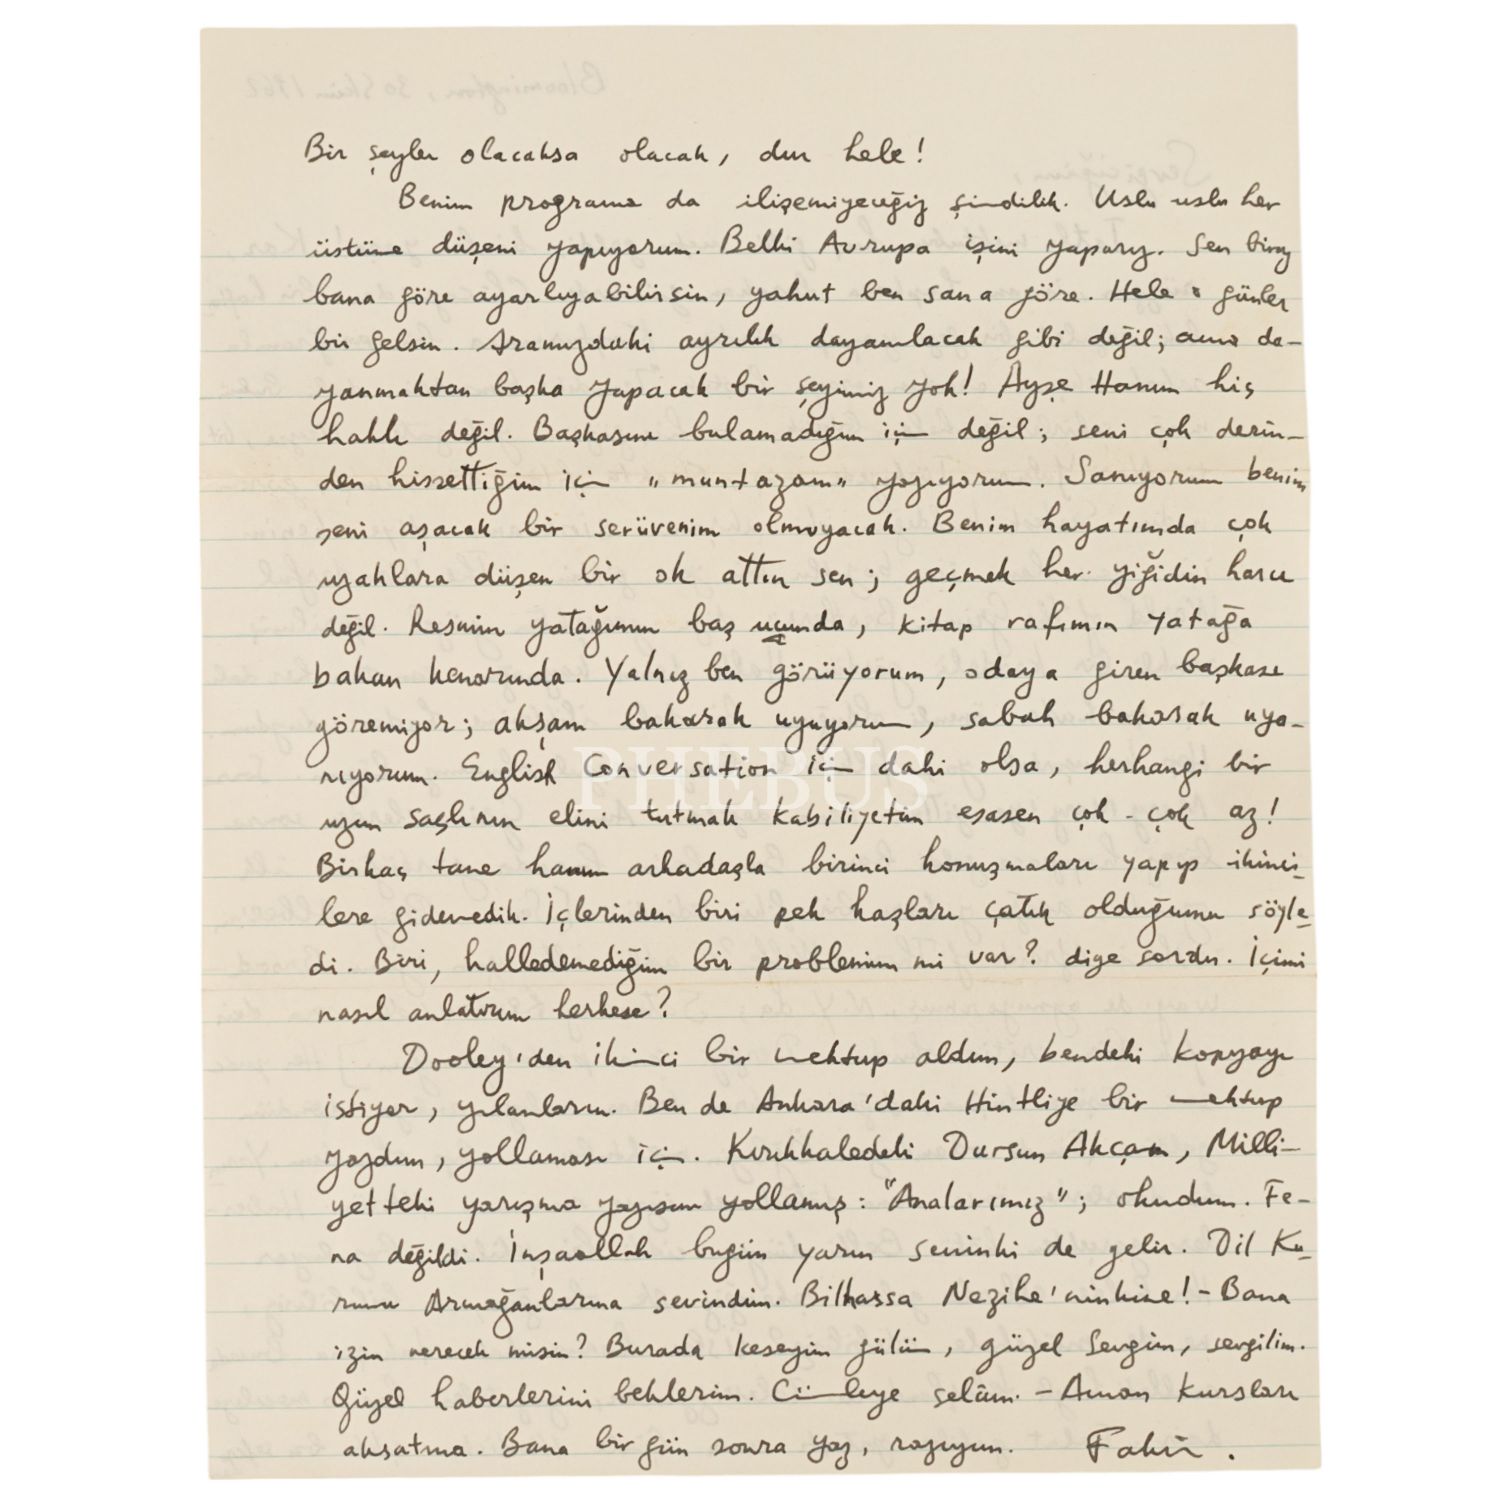 Bir şeyler olacaksa olacak, dur hele!
Benim programa da ilişemiyeceğiz şimdilik. Uslu uslu her
üstüme düşeni yapıyorum. Belki Avrupa işini yaparız. Sen biraz
bana göre ayarlıyabilirsin, yahut ben sana göre. Hele o günler
bir gelsin. Aramızdaki ayrılık dayanılacak gibi değil; ama da-
yanmaktan başka yapacak bir şeyimiz yok! Ayşe Hanım hiç
haklı değil. Başkasını bulamadığım için değil; seni çok derin-
den hissettiğim için "muntazam" yazıyorum. Sanıyorum benim
seni aşacak bir serüvenim olmıyacak. Benim hayatımda çok
uzaklara düşen bir ok attın sen; geçmek her yiğidin harcı
değil. Resmin yatağımın baş ucunda, kitap rafımın yatağa
bakan kenarında. Yalnız ben görüyorum, odaya giren başkası
göremiyor; akşam bakarak uyuyorum, sabah bakarak uya-
nıyorum. English Conversation için dahi olsa, herhangi bir
uzun saçlının elini tutmak kabiliyetim esasen çok - çok az!
Birkaç tane hanım arkadaşla birinci konuşmaları yapıp ikinci-
lere gidemedik. İçlerinden biri pek kaşları çatık olduğumu söyle-
di. Biri, halledemediğim bir problemim mi var? diye sordu. İçimi
nasıl anlatırım herkese?
Dooley'den ikinci bir mektup aldım, bendeki kopyayı
istiyor, yılanların. Ben de Ankara'daki Hintliye bir mektup
yazdım, yollaması için. Kırıkkaledeki Dursun Akçam, Milli-
yetteki yarışma yazısını yollamış: "Analarımız"; okudum. Fe-
na değildi. İnşaallah bugün yarın seninki de gelir. Dil Ku-
rumu Armağanlarına sevindim. Bilhassa Nezihe'ninkine! - Bana
izin verecek misin? Burada keseyim gülüm, güzel Sevgim, sevgilim.
Güzel haberlerini beklerim. Cümleye selâm. - Aman kursları
aksatma. Bana bir gün sonra yaz, razıyım. Fakir.
PHEBUS
Bloomington, 30 Ekim 1962